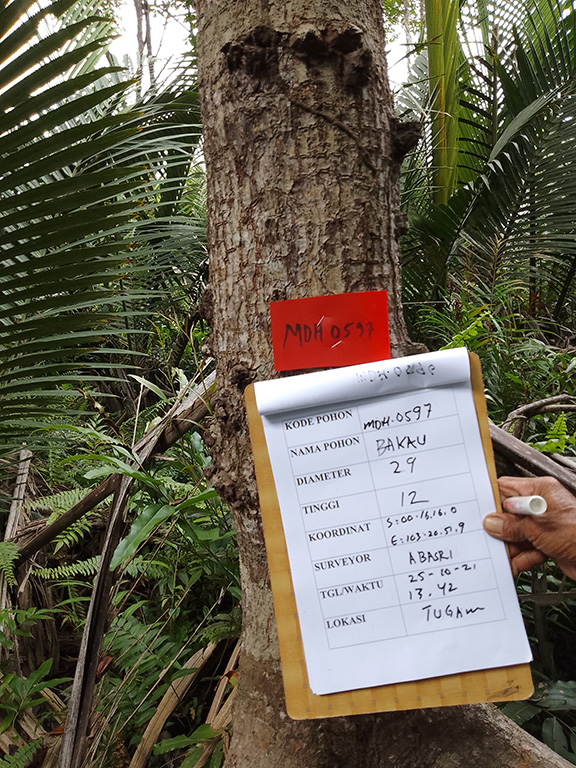 MDH 0597
KODE POHON MDH.0597
NAMA POHON BAKAU
DIAMETER 29
TINGGI 12
KOORDINAT S:00-16.16.0
E:103-20.51.9
SURVEYOR ABASRI
TGL/WAKTU 25-10-21
13.42
LOKASI